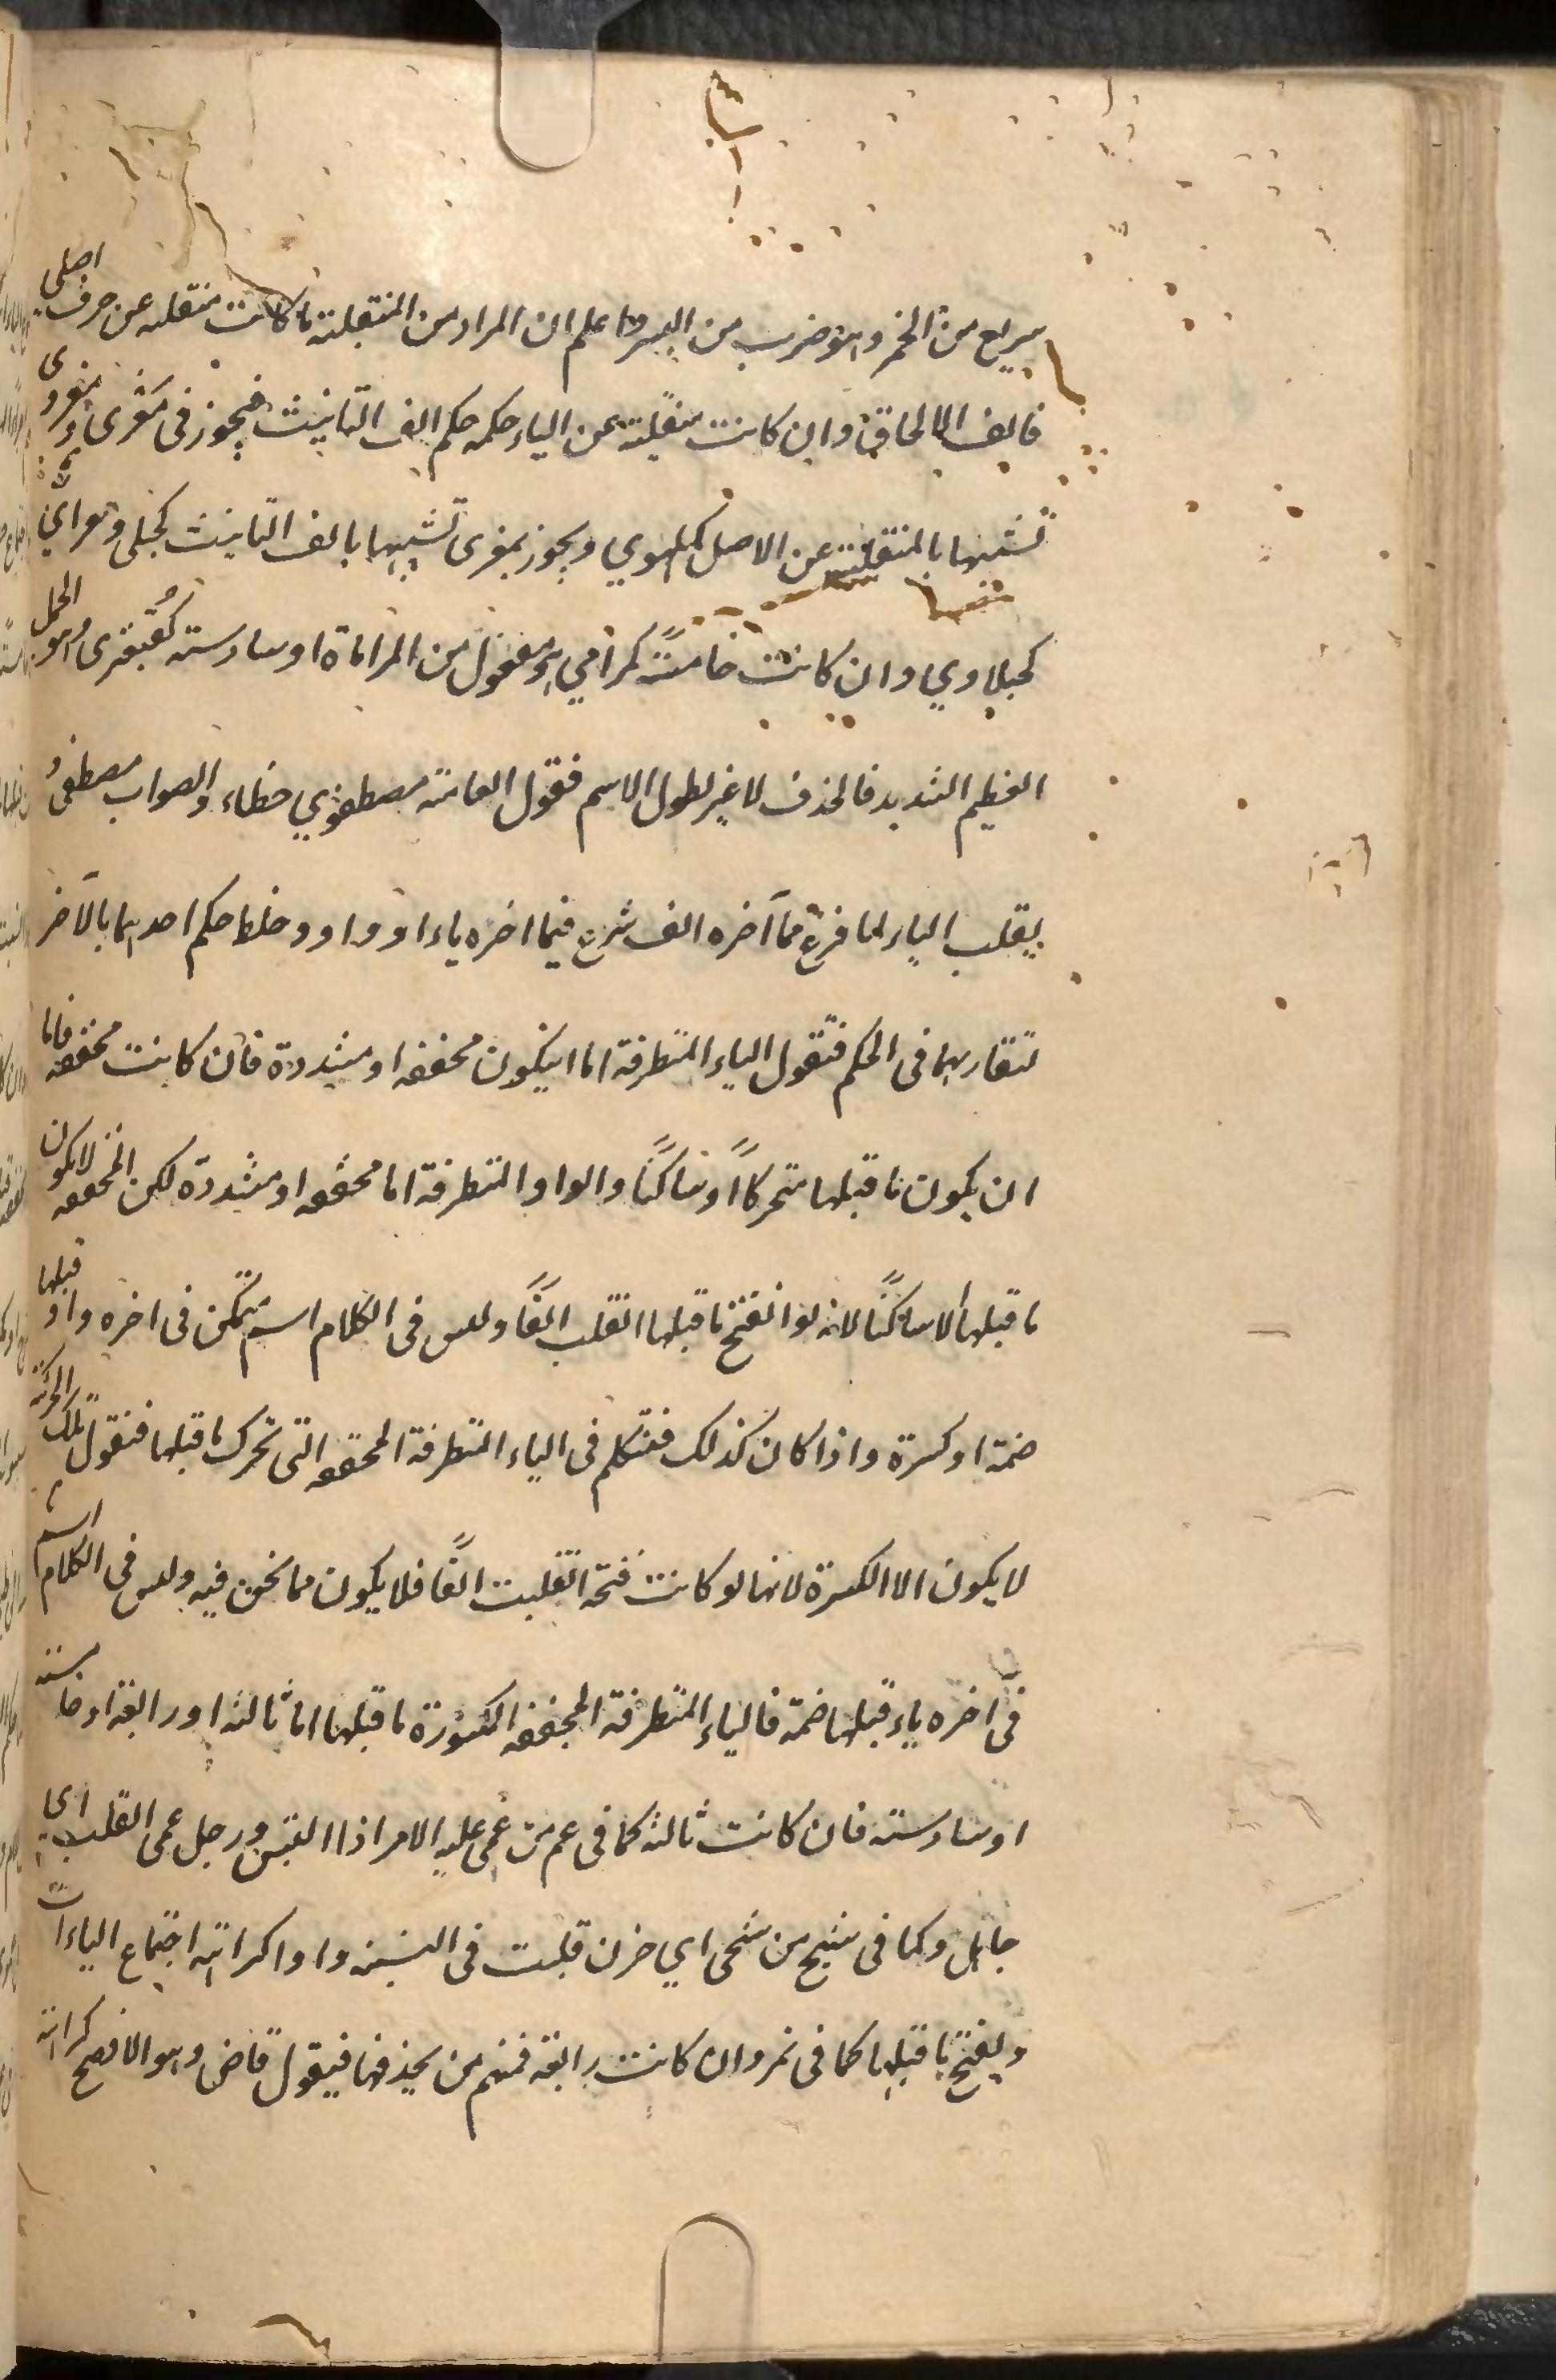 سريع من الخمر وهو ضرب من السير واعلم ان المراد من المنقلبة ما كانت منقلبه عن حرف اصلى
فالف الالحاق وان كانت منقلبة عن الياء حكمه حكم الف التانيث فيجوز فى مغرى مغروى
تشبيها بالمنقلبة عن الاصل كملهوي ويجوز مغرى تشبيها بالف التانيث كحبلى و
كحبلاوي وان كانت خامسة كمرامي هو مفعول من المراماة او سادسة كقبعثرى وهو الجمل
العظيم الشديد فالحذف لا غير لطول الاسم فقول العامة مصطفوي خطاء والصواب مصطفى
بقلب الياء لما فرغ مما آخره الف شرع فيما اخره ياء او واو وخلط حكم احديهما بالآخر
لتقاربهما فى الحكم فنقول الياء المتطرفة اما ان يكون مخففه او مشددة فان كانت مخففه فاما
ان يكون ما قبلها متحركاً او ساكنًا والواو المتطرفة اما مخففه او مشددة لكن المخففه لا يكون
ما قبلها الا ساكنًا لانه لو انفتح ما قبلها انقلب الفًا وليس فى الكلام اسم متمكن فى اخره واو قبلها
ضمة او كسرة واذا كان كذلك فنتكلم فى الياء المتطرفة المخففه التى تحرك ما قبلها فنقول تلك الحركة
لا يكون الا الكسرة لانها لو كانت فتحة انقلبت الفًا فلا يكون مما نحن فيه وليس فى الكلام اسم
فى آخره ياء قبلها ضمة فالياء المتطرفة المخففه المكسورة ما قبلها اما ثالثه او رابعة او خامسة
او سادسة فان كانت ثالثه كما فى عم من عمى عليه الامر اذا التبس ورجل عمى القلب اى
جاهل وكما فى شج من شجى اي حزن قلبت فى النسبة واوا كراهة اجتماع الياءات
ويفتح ما قبلها كما فى نمر وان كانت رابعة فمنهم من يحذفها فيقول قاضى وهو الافصح كراهة